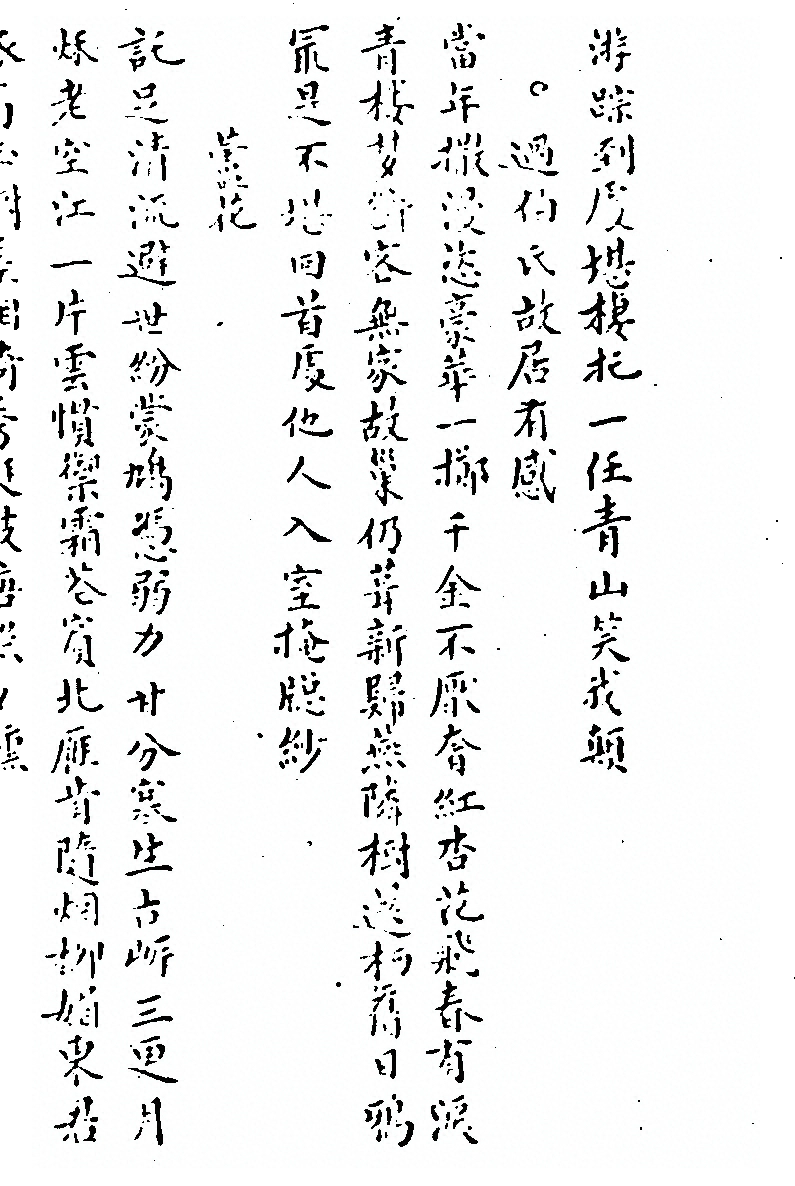 游踪到處堪棲托一任青山笑我顛
過伯氏故居有感
當年撒漫恣豪華一擲千金不厭奢紅杏花飛春有淚
青樓夢斷客無家故巢仍葺新歸燕隣樹遶柯舊日鴉
最是不堪回首處他人入室掩牕紗
蘆花
託足清流避世紛蒙鳩憑弱力廿分寒生古岍三更月
秌老空江一片雲慣禦霜苍賓北雁肯隨烟柳媚東君